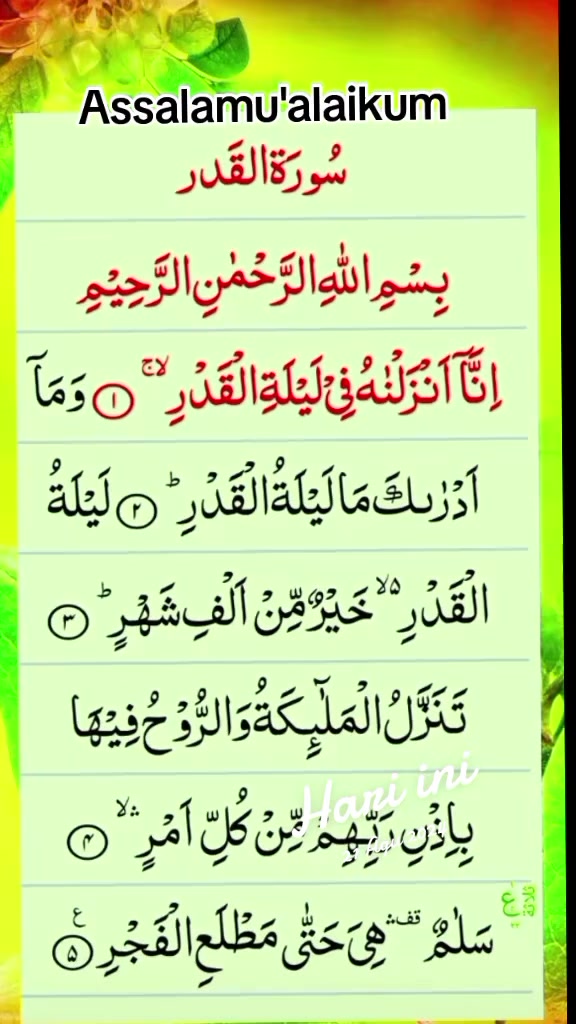 Assalamu'alaikum
سُورَةُ الْقَدر
بِسْمِ اللّٰهِ الرَّحْمٰنِ الرَّحِيْمِ
اِنَّآ اَنْزَلْنٰهُ فِيْ لَيْلَةِ الْقَدْرِ ۚۙ ١ وَمَآ
اَدْرٰىكَ مَا لَيْلَةُ الْقَدْرِ ؕ ٢ لَيْلَةُ
الْقَدْرِ ۙ۬ خَيْرٌ مِّنْ اَلْفِ شَهْرٍ ؕ ٣
تَنَزَّلُ الْمَلٰٓئِكَةُ وَالرُّوْحُ فِيْهَا
بِاِذْنِ رَبِّهِمْ مِّنْ كُلِّ اَمْرٍ ۛۙ ٤
Hari ini
سَلٰمٌ قف ۛ هِيَ حَتّٰى مَطْلَعِ الْفَجْرِ ع ٥
ع
ثلاثة